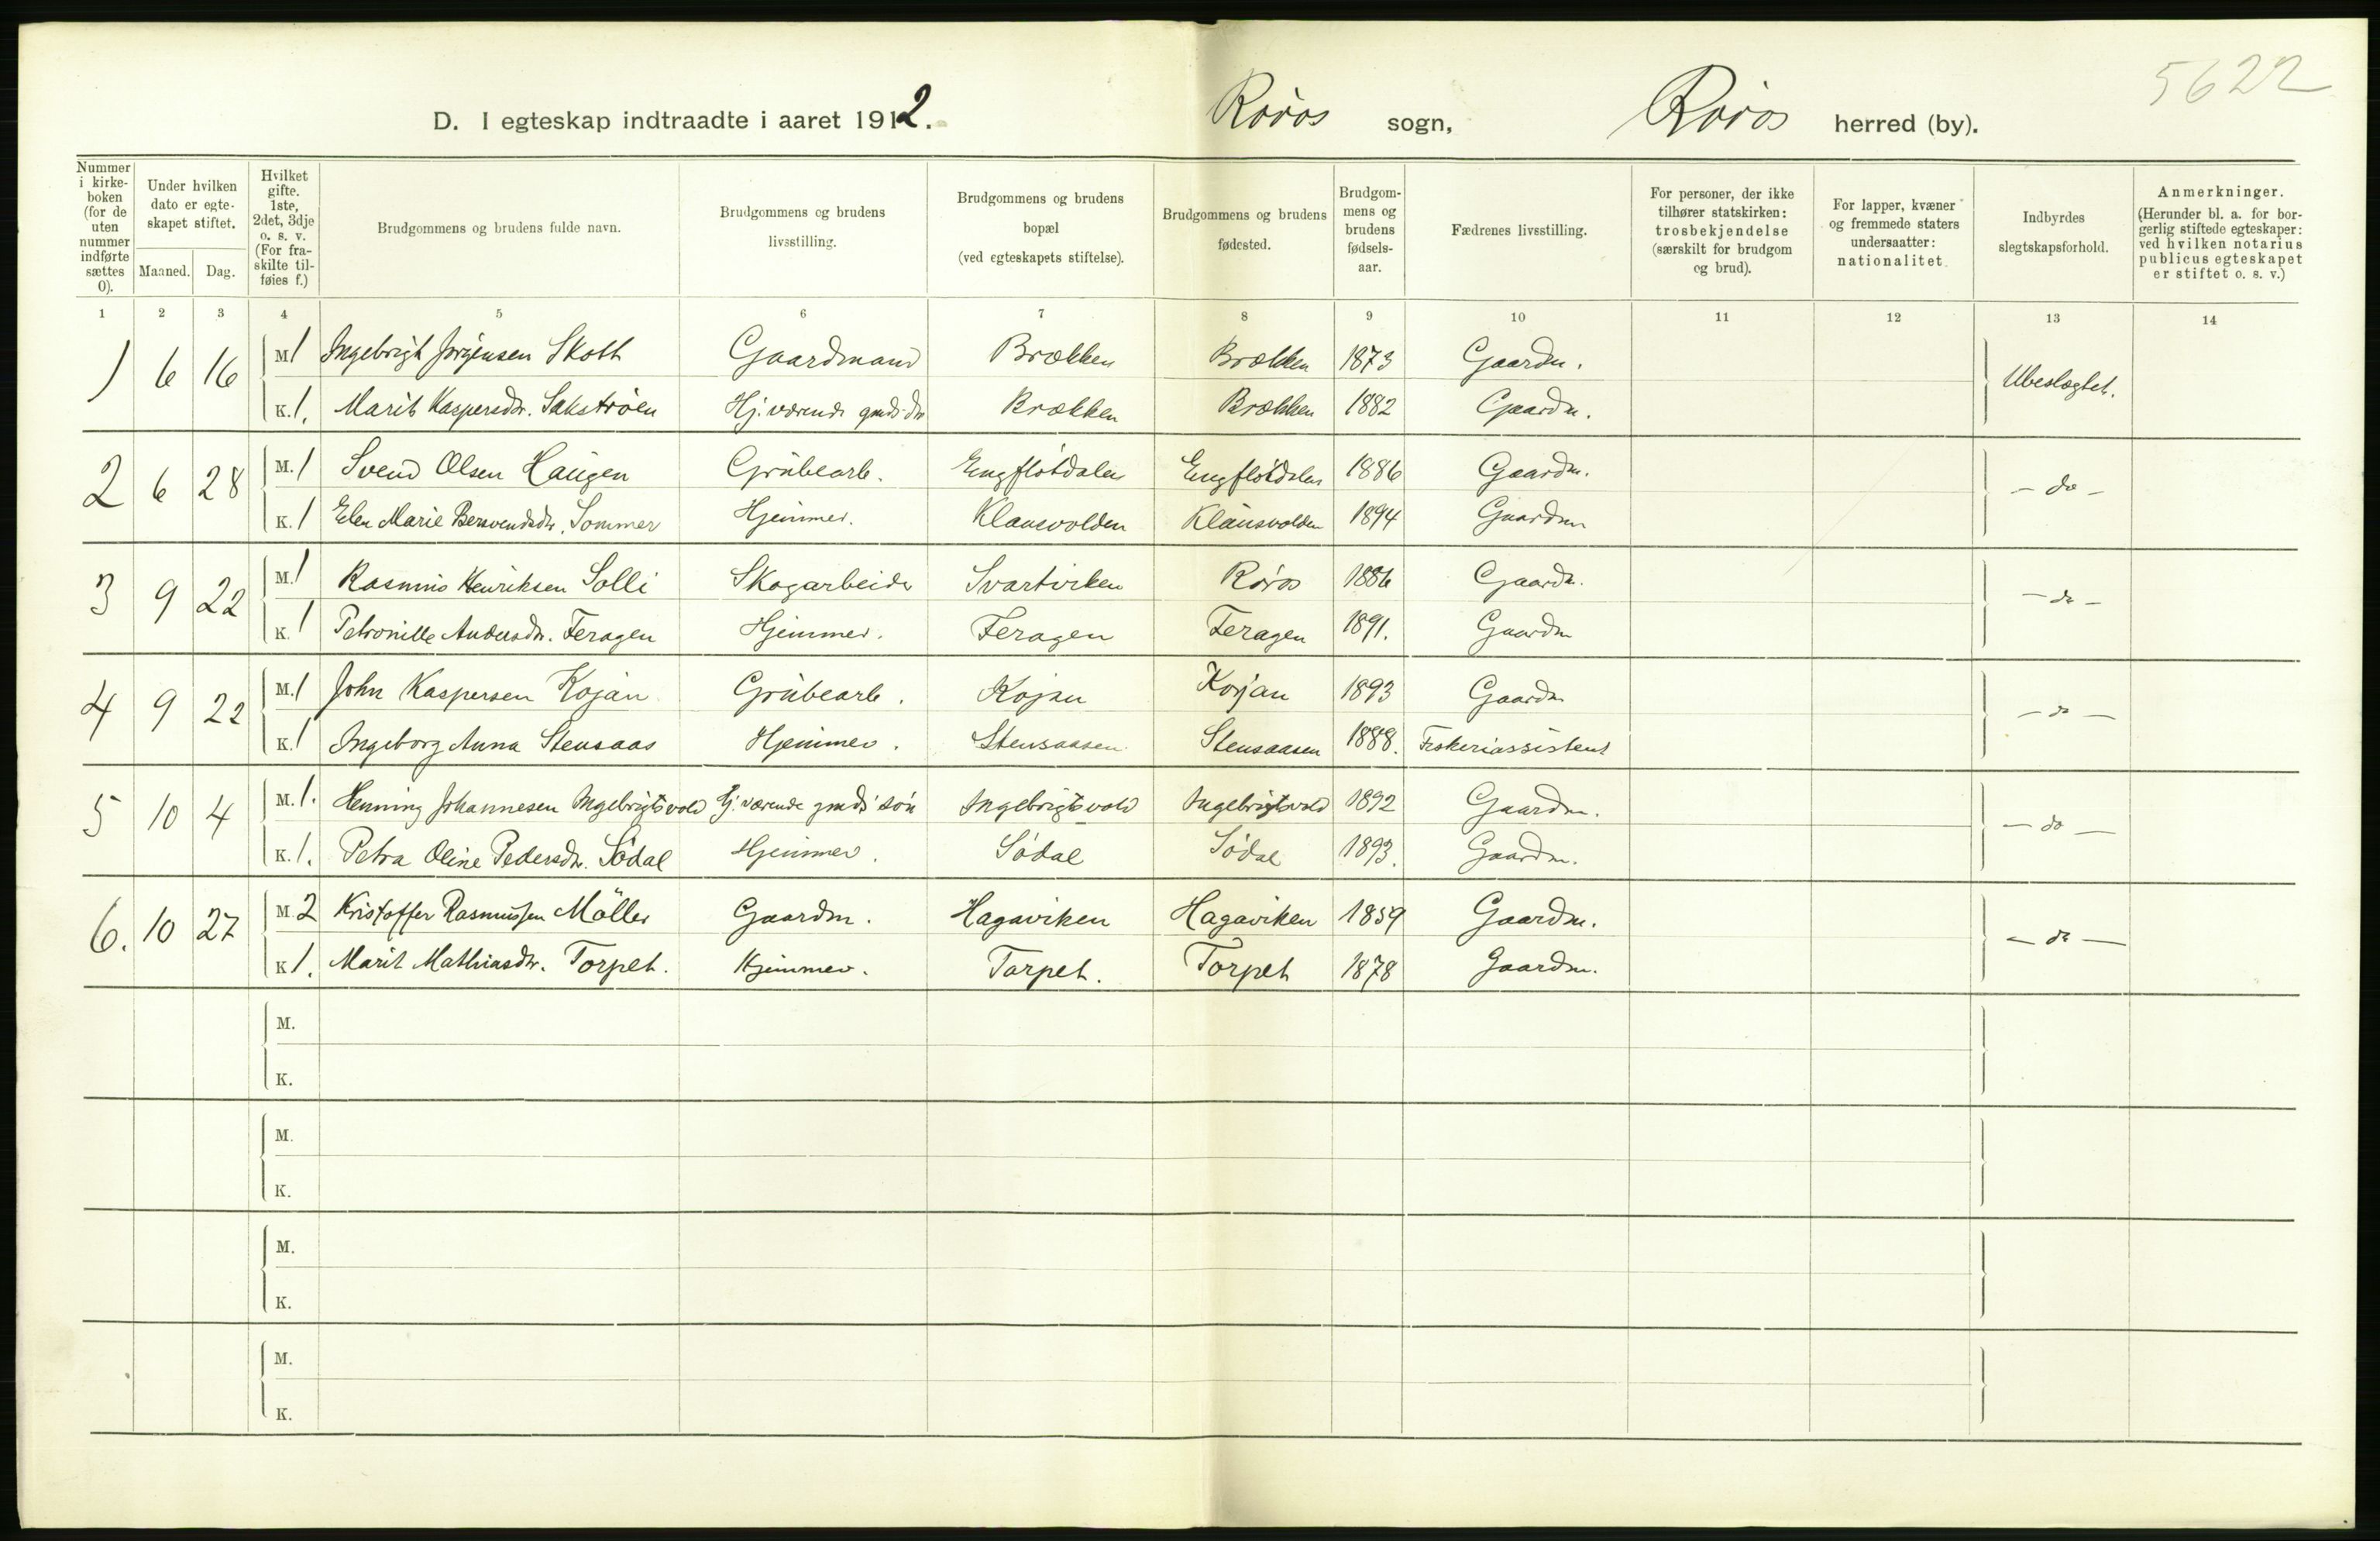 5622
D. I egteskap indtraadte i aaret 1912. Røros sogn, Røros herred (by).
Nummer i kirke-boken (for de uten nummer indførte sættes 0).
Under hvilken dato er egte-skapet stiftet.
Maaned. Dag.
Hvilket gifte. 1ste, 2det, 3dje o. s. v. (For fra-skilte til-føies f.)
Brudgommens og brudens fulde navn.
Brudgommens og brudens livsstilling.
Brudgommens og brudens bopæl (ved egteskapets stiftelse).
Brudgommens og brudens fødested.
Brudgom-mens og brudens fødsels-aar.
Fædrenes livsstilling.
For personer, der ikke tilhører statskirken: trosbekjendelse (særskilt for brudgom og brud).
For lapper, kvæner og fremmede staters undersaatter: nationalitet.
Indbyrdes slegtskapsforhold.
Anmerkninger. (Herunder bl. a. for bor-gerlig stiftede egteskaper: ved hvilken notarius publicus egteskapet er stiftet o. s. v.)
1 2 3 4 5 6 7 8 9 10 11 12 13 14
1 6 16 M. 1 Ingebrigt Jørgensen Skott Gaardmand Brækken Brækken 1873 Gaardm. Ubeslægtet.
K. 1. Marit Kaspersdr. Sakstrøen Hj. værende gmds dr Brækken Brækken 1882 Gaardm.
2 6 28 M. 1 Svend Olsen Haugen Grubearb. Engfløtdalen Engfløtdalen 1886 Gaardm. - do -
K. 1 Elen Marie Bersvendsdr. Sommer Hjemmev. Klausvolden Klausvolden 1894 Gaardm
3 9 22 M. 1 Rasmus Henriksen Solli Skogarbeider Svartviken Røros 1886 Gaardm. - do -
K. 1 Petronille Andersdr. Feragen Hjemmev. Feragen Feragen 1891. Gaardm
4 9 22 M. 1 John Kaspersen Kojan Grubearb. Kojan Kojan 1893 Gaardm - do -
K. 1 Ingeborg Anna Stensaas Hjemmev. Stensaasen Stensaasen 1888. Fiskeriassistent
5 10 4 M. 1. Henning Johannesen Ingebrigtsvold Hj. værende gmds søn Ingebrigtsvold Ingebrigtsvold 1892 Gaardm. - do -
K. 1. Petra Oline Pedersdr. Sødal Hjemmev. Sødal Sødal 1893. Gaardm.
6. 10 27 M. 2 Kristoffer Rasmussen Möller Gaardm. Hagaviken Hagaviken 1859 Gaardm. - do -
K 1. Marit Mathiasdr. Torpet. Hjemmev. Torpet. Torpet 1878 Gaardm.
M.
K.
M.
K.
M.
K.
M.
K.